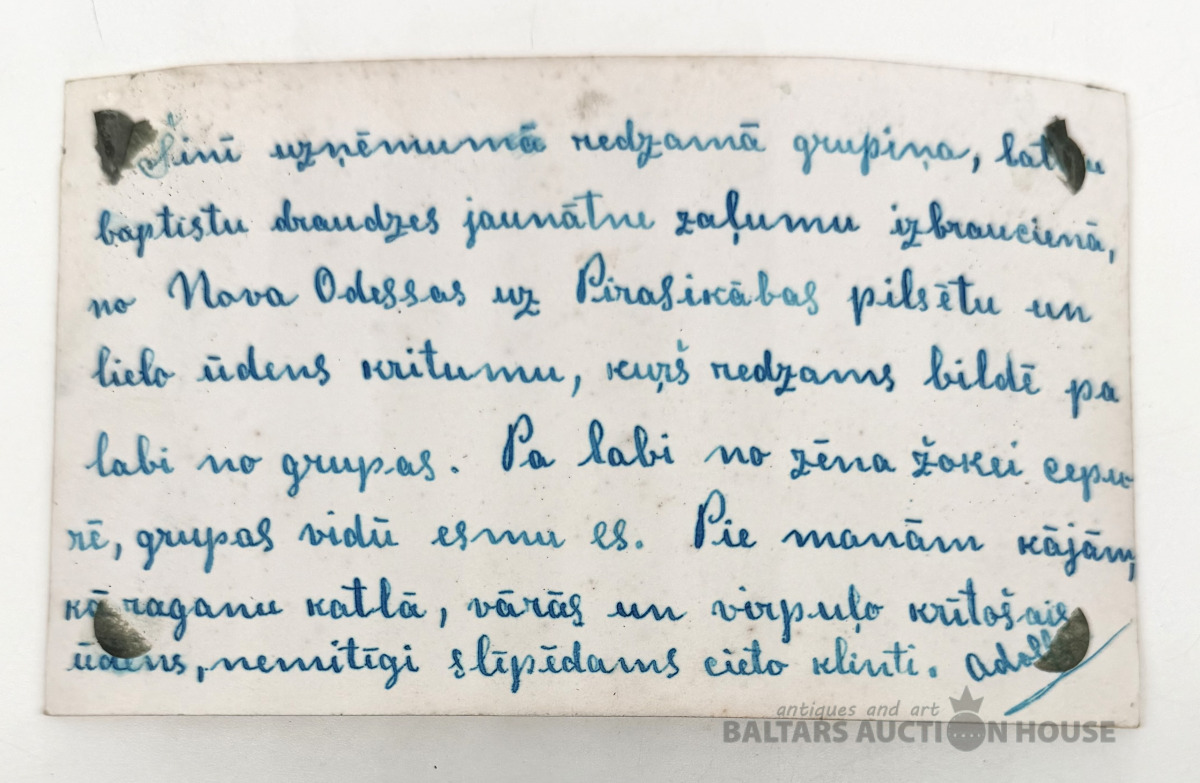 Šinī uzņēmumā redzamā grupiņa,
baptistu draudzes jaunātne zaļumu izbraucienā,
no Nova Odessas uz Pirasikābas pilsētu un
lielo ūdens kritumu, kuŗš redzams bildē pa
labi no grupas. Pa labi no zēna žokei cepu-
rē, grupas vidū esmu es. Pie manām kājām,
kā raganu katlā, vārās un virpuļo krītošais
ūdens, nemitīgi slīpēdams cieto klinti.
antiques and art
BALTARS AUCTION HOUSE